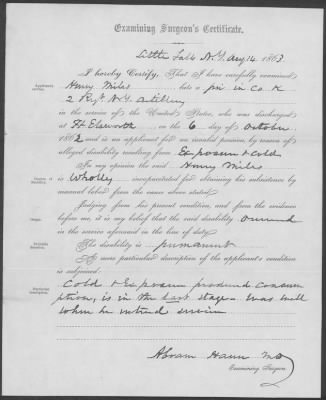 Examining Surgeon's Certificate.
Little Falls N.Y. Aug 14 1863
I hereby Certify, That I have carefully examined
Henry Miles late a pri in Co K
2 Regt N.Y. Artillery
in the service of the United States, who was discharged
at Ft Elsworth on the 6 day of October
1862 and is an applicant for an invalid pension, by reason
of alleged disability resulting from Exposure & cold
In my opinion the said Henry Miles
is Wholly incapacitated for obtaining his subsistence by
manual labor from the cause above stated.
Judging from his present condition, and from the evidence
before me, it is my belief that the said disability occurred
in the service aforesaid in the line of duty.
The disability is permanent
A more particular description of the applicant's condition
is subjoined:
Cold & Exposure produced consum
ption, is in the last stage was well
when he entered service
Abram Haun M.D.
Examining Surgeon.